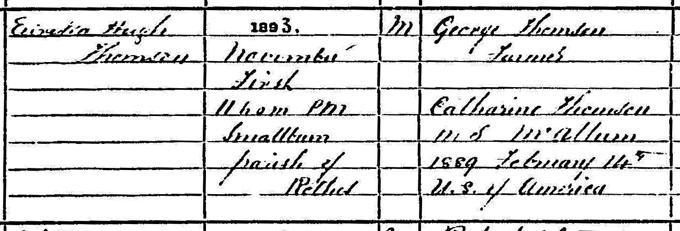 Hugh 1893. M George Thomson
Thomson November Farmer
First
11 hom PM Catharine Thomson
Smallburn m s McAllum
parish of 1889 February 14th
Rothes U.S. of America